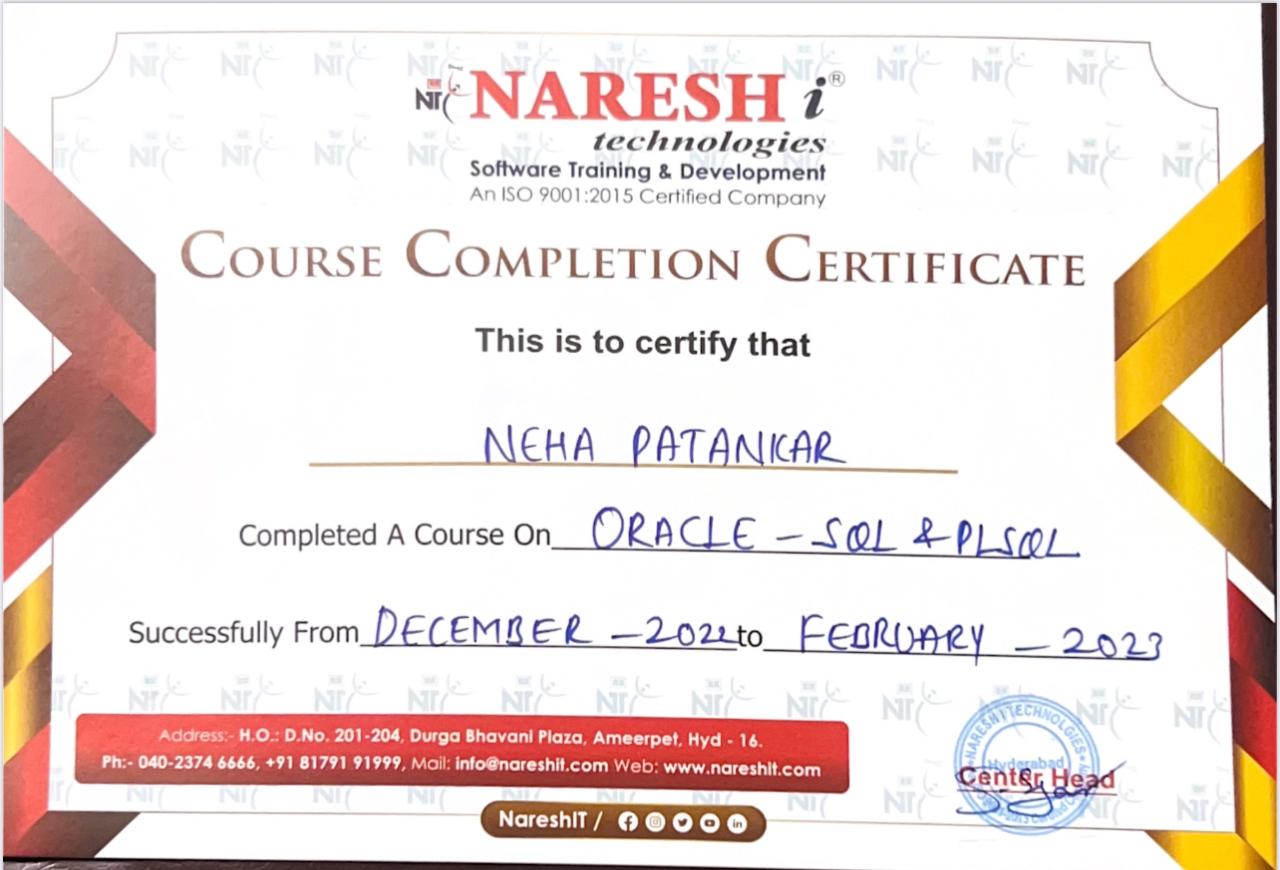 NT NARESH i®
technologies
Software Training & Development
An ISO 9001:2015 Certified Company
COURSE COMPLETION CERTIFICATE
This is to certify that
NEHA PATANKAR
Completed A Course On ORACLE - SQL & PLSQL
Successfully From DECEMBER - 2022 to FEBRUARY - 2023
Address:- H.O.: D.No. 201-204, Durga Bhavani Plaza, Ameerpet, Hyd - 16.
Ph:- 040-2374 6666, +91 81791 91999, Mail: info@nareshit.com Web: www.nareshit.com
NARESH I TECHNOLOGIES
Hyderabad
Center Head
NareshIT /